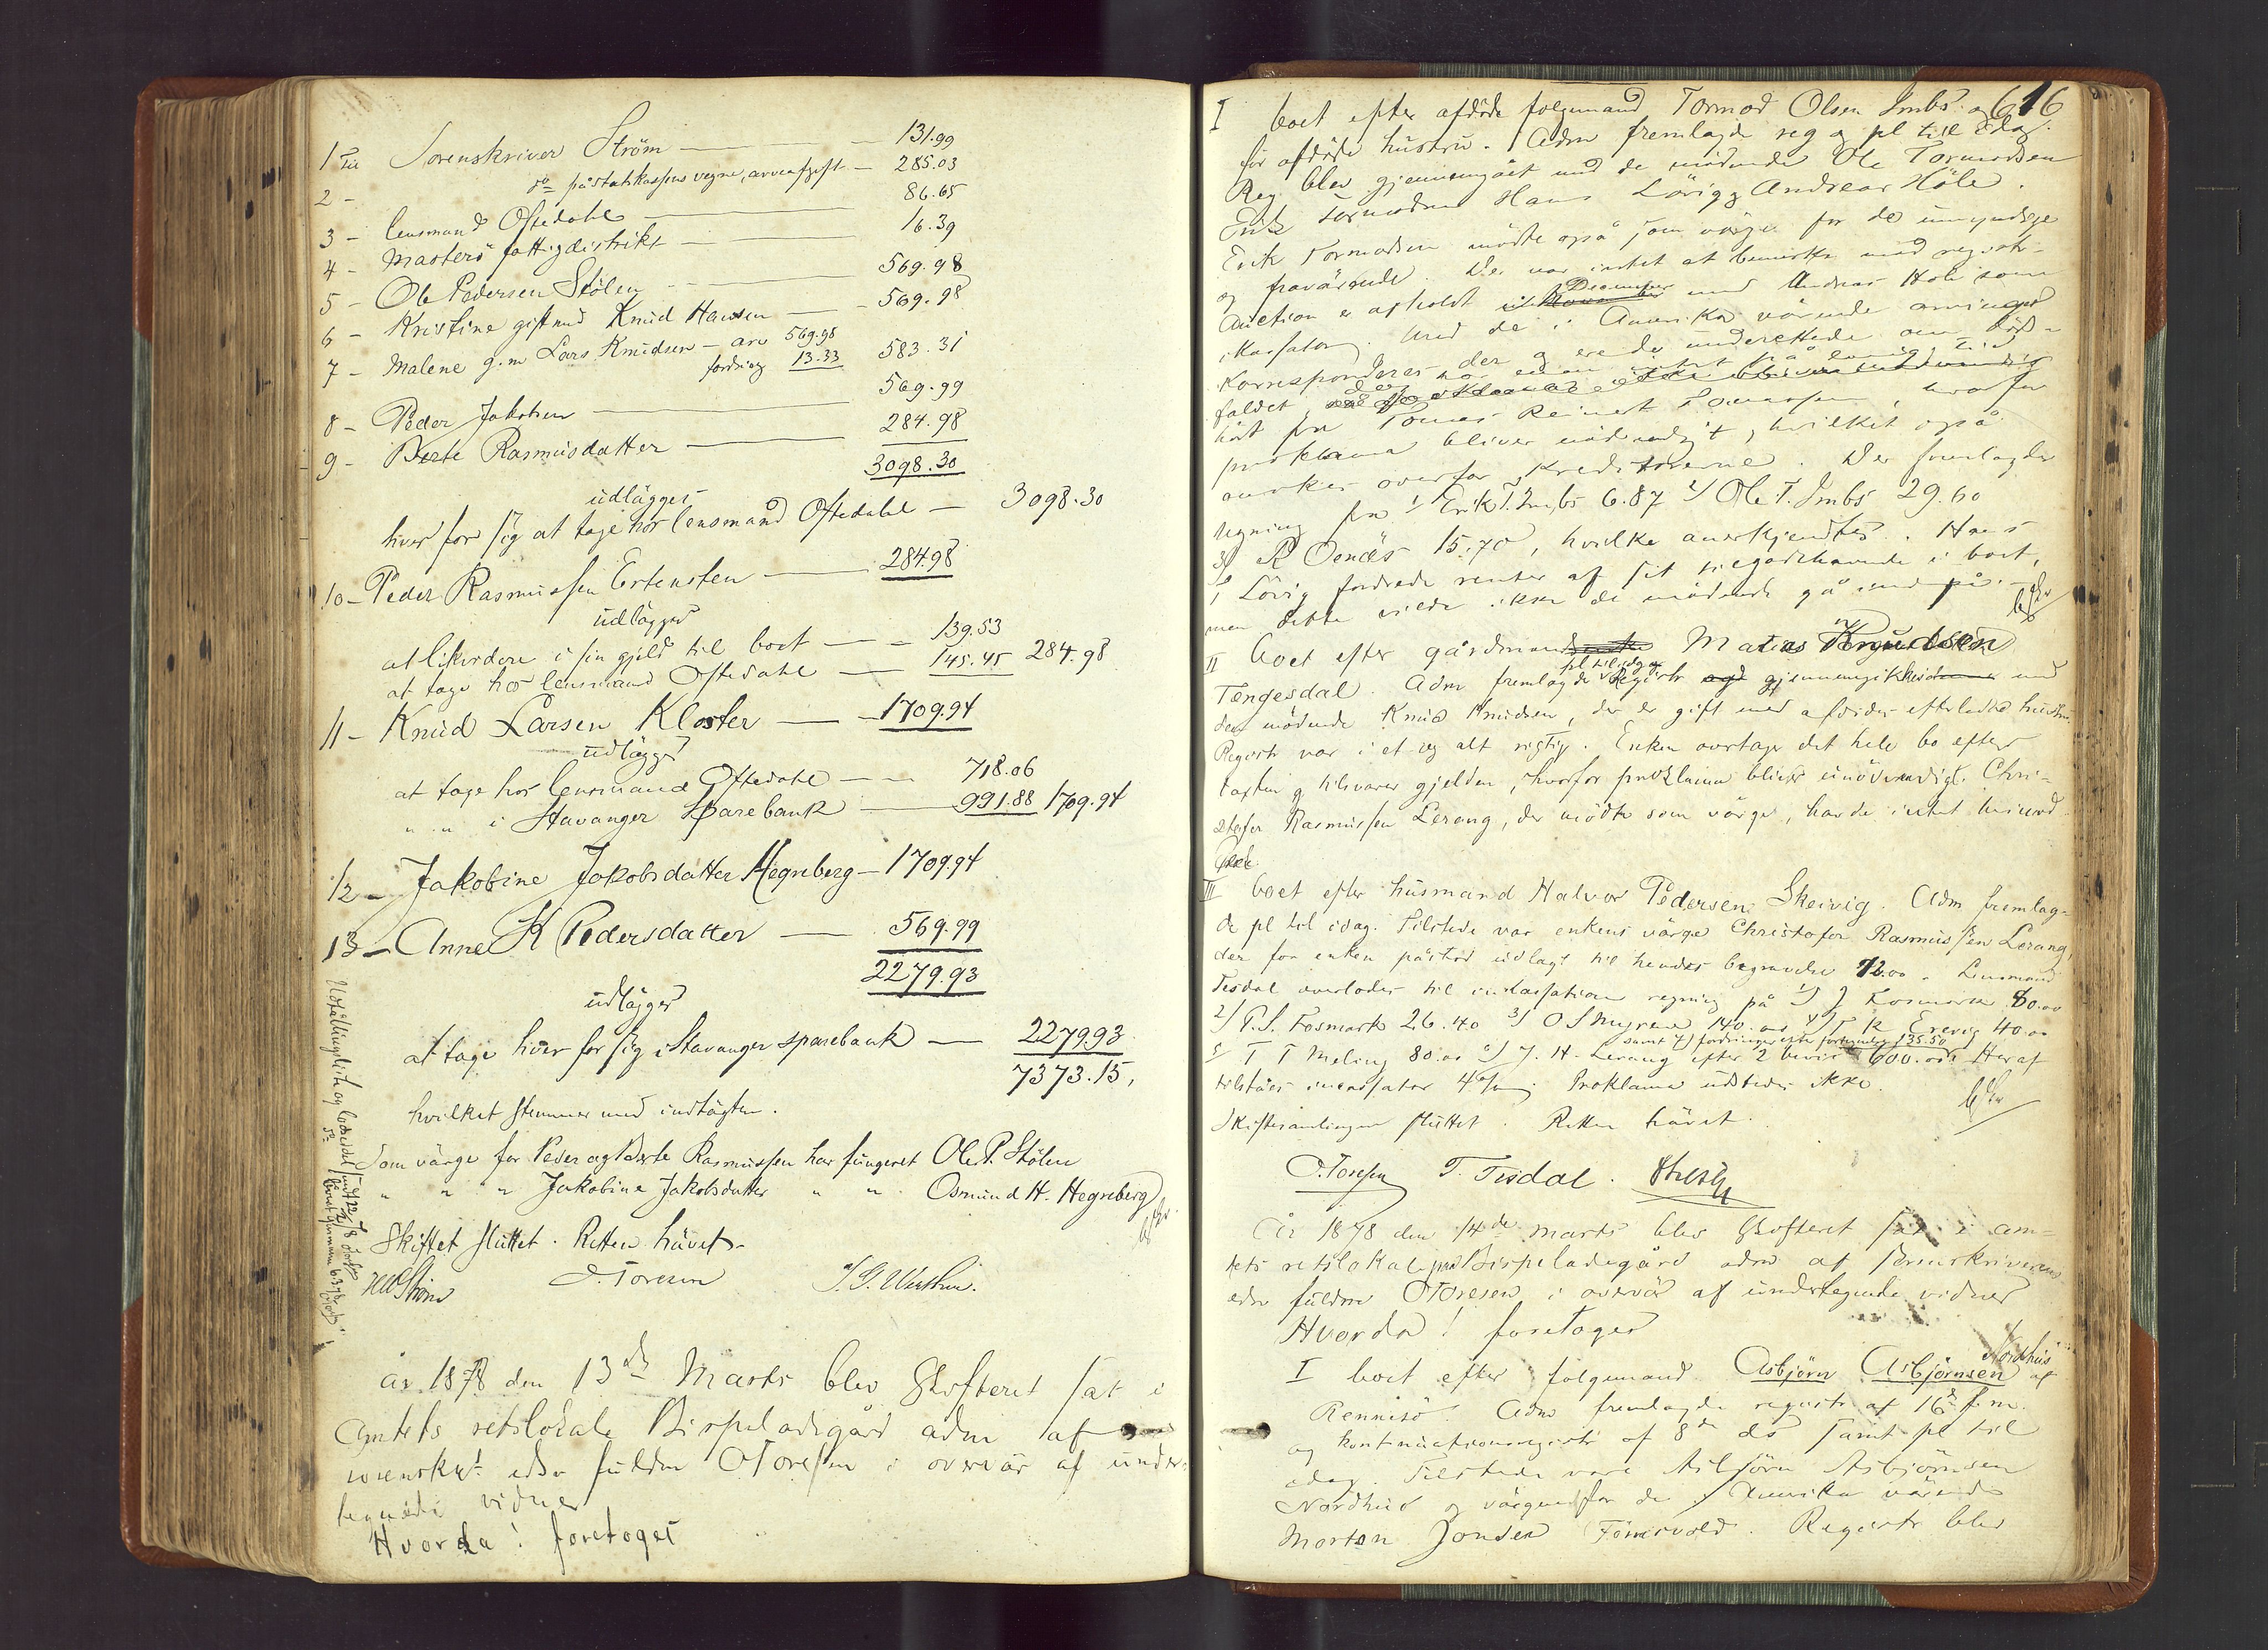 1 til Sorenskriver Ström — 131.99
2 - do på statskassens vegne, arveafgift — 285.03
3 - lensmand Oftedahl — 86.65
4 - Masterö fattigdistrikt — 16.39
5 - Ole Pedersen Stölen — 569.98
6 - Kristine gift med Knud Hansen — 569.98
7 - Malene g. m Lars Knudsen — arv 569.98
fordring 13.33 583.31
8 - Peder Jakobsen — 569.99
9 - Berte Rasmusdatter — 284.98
3098.30
udlägges
hver for sig at tage hos lensmand Oftedahl — 3098.30
10 - Peder Rasmussen Ertensten — 284.98
udlägges
at likvidere i sin gjeld til boet — 139.53
at tage hos lensmand Oftedahl — 145.45 284.98
11 - Knud Larsen Kloster — 1709.94
udlägges
at tage hos lensmand Oftedahl — 718.06
" " i Stavanger Sparebank — 991.88 1709.94
12 - Jakobine Jakobsdatter Hegreberg — 1709.94
13 - Anne K Pedersdatter — 569.99
2279.93
udlägges
at tage hver for sig i Stavanger sparebank — 2279.93
7373.15,
hvilket stemmer med indtägten.
Som värge for Peder og Berte Rasmussen har fungeret Ole P. Stölen
" " " Jakobine Jakobsdatter " " Osmund H. Hegreberg
Skiftet sluttet. Retten hävet.
Ström O. Toresen
år 1878 den 13de Marts blev Skifteret sat i
Amtets retslokale Bispeladegård adm af
sorenskr edsv fuldm O Toresen i overvär af under-
tegnede vidner
Hvorda! foretoges
616
I boet efter afdöde folgemand Tormod Olsen Imbs og
för afdöde hustru. Adm fremlagde reg og pl til idag.
Reg blev gjennemgået med de mödende Ole Tormodsen
Erik Tormodsen Hans Lörig og Andreas Höle.
Erik Tormodsen mödte også som värge for de umyndige
og fraværende. Der var intet at bemerke med registr-
Auction er afholdt i December med Andreas Höle som
inkassator. Med de i Amerika värende arvinger
korresponderes der og ere de underrettede om döds-
faldet, dog har man intet på lang tid
hört fra Tomas Reinert Tormodsen, hvorfor
proklama bliver nödvendigt, hvilket også
önskes overfor kreditorerne. Der fremlagdes
regning fra 1/ Erik T. Imbs 6.87 2/ Ole T. Imbs 29.60
3/ R Oenäs 15.70, hvilke anerkjendtes. Hans
Lörig fordrede renter af sit tilgodehavende i boet,
men dette vilde ikke de mödende gå ind på.
II boet efter gårdmand Matias Knudsen
Tengesdal. Adm fremlagde pl til idag og Registr gjennemgikkes med
den mödende Knud Knudsen, der er gift med afdödes efterladte hustru.
Registr var i et og alt rigtig. Enken overtager det hele bo efter
taxten og tilsvarer gjelden, hvorfor proklama bliver unödvendigt. Chri-
stofer Rasmussen Lerang, der mödte som värge, havde intet herimod.
III boet efter husmand Halvor Pedersen Skeivig. Adm fremlag-
de pl til idag. Tilstede var enkens värge Christofer Rasmussen Lerang,
der for enken påstod udlagt til hendes begravelse 72.00. Lensmand
Tisdal overlodes til inkassation regning på 1/ J Fosmark 80.00
2/ P. S. Fosmark 26.40 3/ O S Myrene 140.00 4/ T R Erevig 40.00
samt 7/ fordringer efter fortegnelse 135.50
5/ T T Meling 80.00 6/ J. H. Lerang efter 2 bevis 600.00. Heraf
tilståes incassator 4%. Proklama udstedes ikke.
Skiftesamlingen sluttet. Retten hävet.
O. Toresen T. Tisdal.
År 1878 den 14de marts blev Skifteret sat i am-
tets retslokale på Bispeladegård adm af sorenskriverens
edsv fuldm O Toresen i overvär af undertegnede vidner
Hvorda! foretoges
I boet efter folgemand Asbjörn Asbjörnsen Nordhus af
Rennesö. Adm fremlagde registr af 16de f. m.
og kontinuationsregistr af 8de ds samt pl til
idag. Tilstede vare Asbjörn Asbjörnsen
Nordhus og värgen for de i Amerika värende
Morten Jonsen. Registr blev